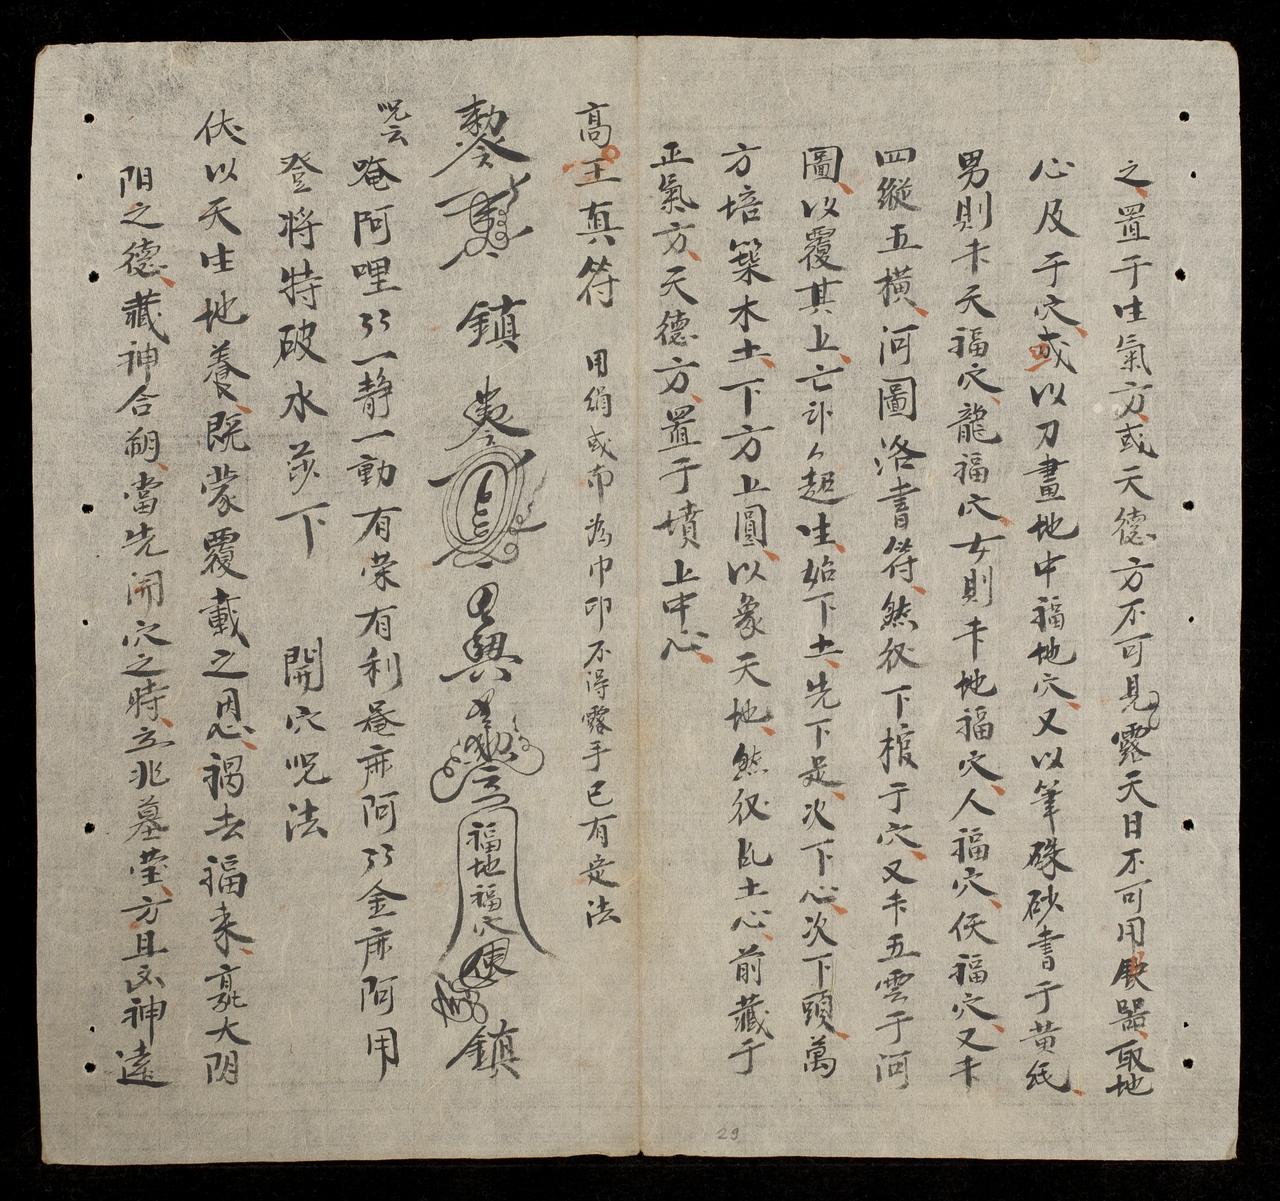 之置于生氣方或天德方不可見露天日不可用眼器取地
心及于穴或以刀畫地中福地穴又以筆硃砂書于黄紙
男則卞天福穴龍福穴女則卞地福穴人福穴仸福穴又卞
四縱五橫河圖洛書符然後下棺于穴又卞五雲于河
圖以覆其上亡卧名超生始下土先下足次下心次下頭萬
方培築木土下方上圓以象天地然後瓦土心前藏于
正氣方天德方置于墳上中心
高王真符 用絹或布為巾印不得露手已有定法
鎮 福地福穴 鎮
呪云 唵阿哩哩一静一動有荣有利菴麻阿哩金麻阿用
登将特破水莎下 開穴呪法
伏以天生地養既蒙覆載之恩禍去福来亨大阴
阳之德藏神合朔當先開穴之時立兆墓塋方且凶神遠